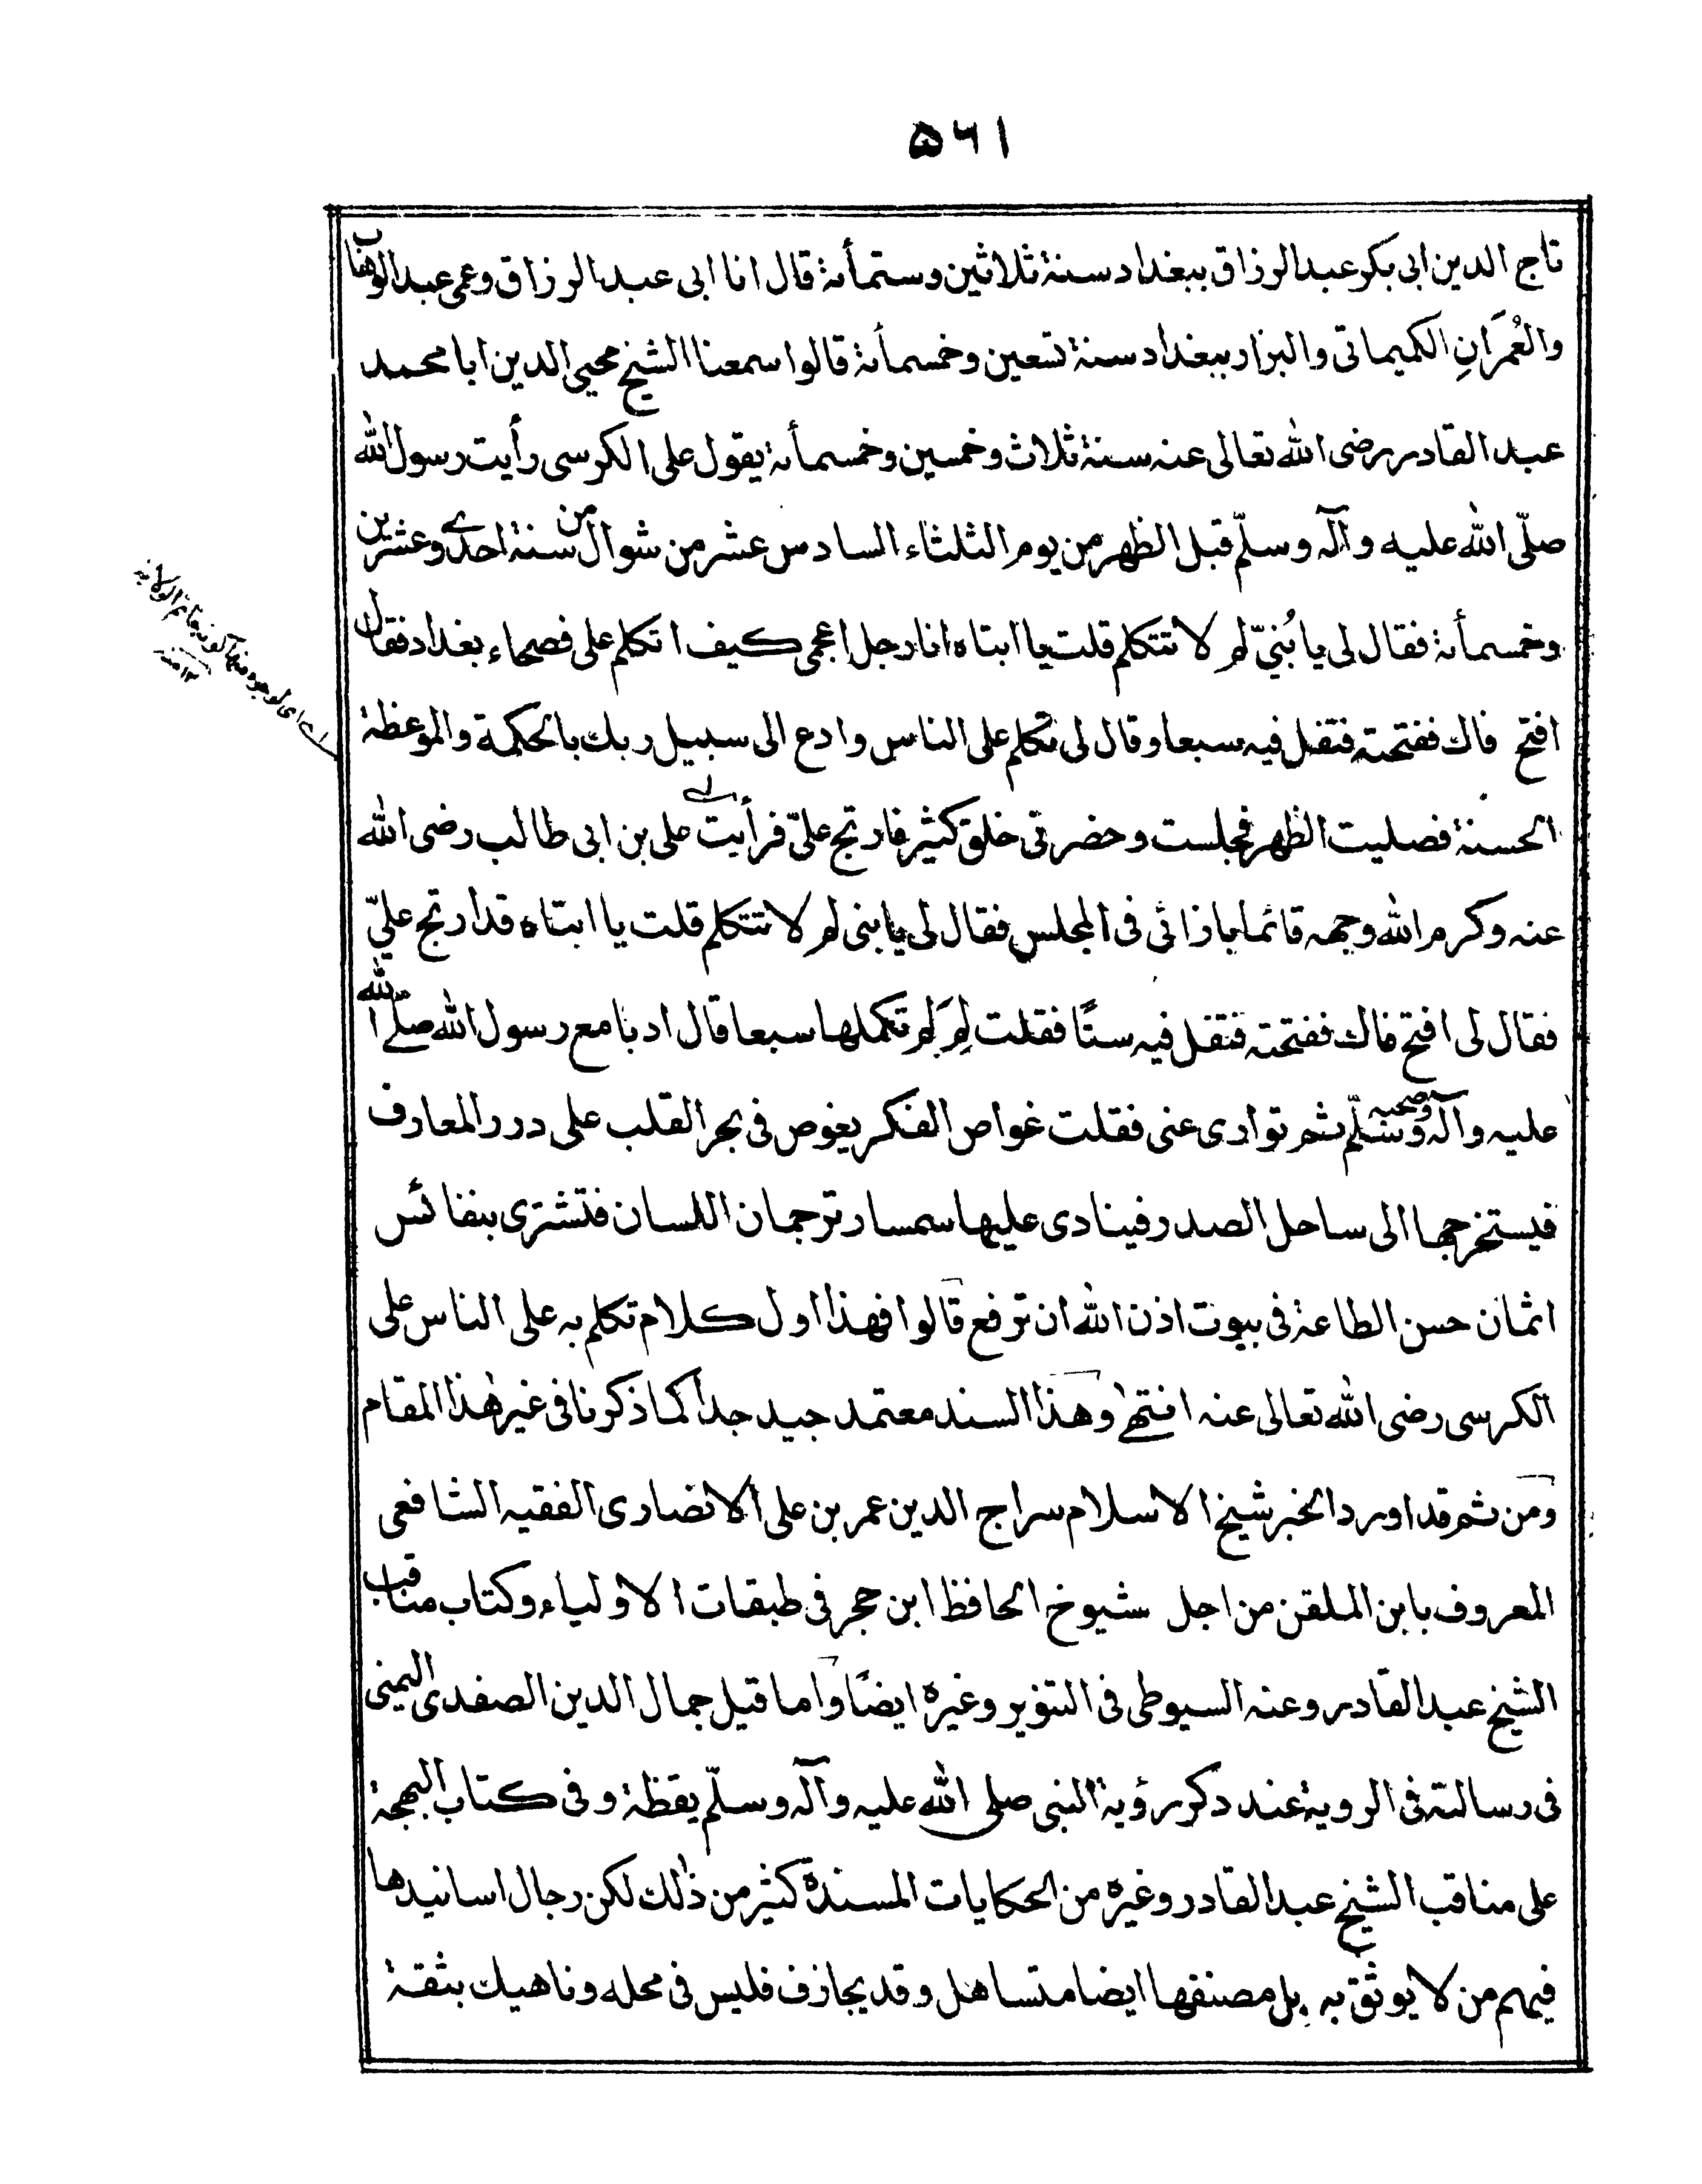 ۵۶۱
تاج الدين ابى بكر عبد الرزاق ببغداد سنة ثلاثين وستمأئة قال انا ابى عبد الرزاق وعمى عبد الوهاب
والعُمَرَانِ الكميماتى والبزار ببغداد سنة تسعين وخمسمأئة قالوا سمعنا الشيخ محيى الدين ابا محمد
عبد القادر رضى الله تعالى عنه سنة ثلاث وخمسين وخمسمأئة يقول على الكرسى رأيت رسول الله
صلّى الله عليه وآله وسلّم قبل الظهر من يوم الثلثاء السادس عشر من شوال من سنة احدے وعشرين
وخمسمأئة فقال لى يا بُنىّ لم لا تتكلم قلت يا ابتاه انا رجل اعجمى كيف اتكلم على فصحاء بغداد فقال
افتح فاك ففتحته فتفل فيه سبعا وقال لى تكلم على الناس وادع الى سبيل ربك بالحكمة والموعظة
الحسنة فصليت الظهر فجلست وحضرتى خلق كثير فارتج علىّ فرأيت على بن ابى طالب رضى الله
عنه وكرم الله وجهه قائما بازائى فى المجلس فقال لى يا بنى لم لا تتكلم قلت يا ابتاه قد ارتج علىّ
فقال لى افتح فاك ففتحته فتفل فيه ستًا فقلت لِمَ لم تكملها سبعا قال ادبا مع رسول الله صلّے الله
عليه وآله وصحبه وسلّم ثم توارى عنى فقلت غواص الفكر يغوص فى بحر القلب على درر المعارف
فيستخرجها الى ساحل الصدر فينادى عليها سمسار ترجمان اللسان فتشترى بنفائس
اثمان حسن الطاعة فى بيوت اذن الله ان ترفع قالوا فهذا اول كلام تكلم به على الناس على
الكرسى رضى الله تعالى عنه انتهٰے وهذا السند معتمد جيد جدا كما ذكرنا فى غير هٰذا المقام
ومن ثم قد اورد الخبر شيخ الاسلام سراج الدين عمر بن على الانصارى الفقيه الشافعى
المعروف بابن الملقن من اجل شيوخ الحافظ ابن حجر فى طبقات الاولياء وكتاب مناقب
الشيخ عبد القادر وعنه السيوطى فى التنوير وغيره ايضًا واما قيل جمال الدين الصفدى اليمنى
فى رسالته فى الروية عند ذكر رؤية النبى صلى الله عليه وآله وسلّم يقظة وفى كتاب البهجة
على مناقب الشيخ عبد القادر وغيره من الحكايات المسندة كثير من ذٰلك لكن رجال اسانيدها
فيهم من لا يوثق به بل مصنفها ايضا متساهل وقد يجازف فليس فى محله وناهيك بثقة